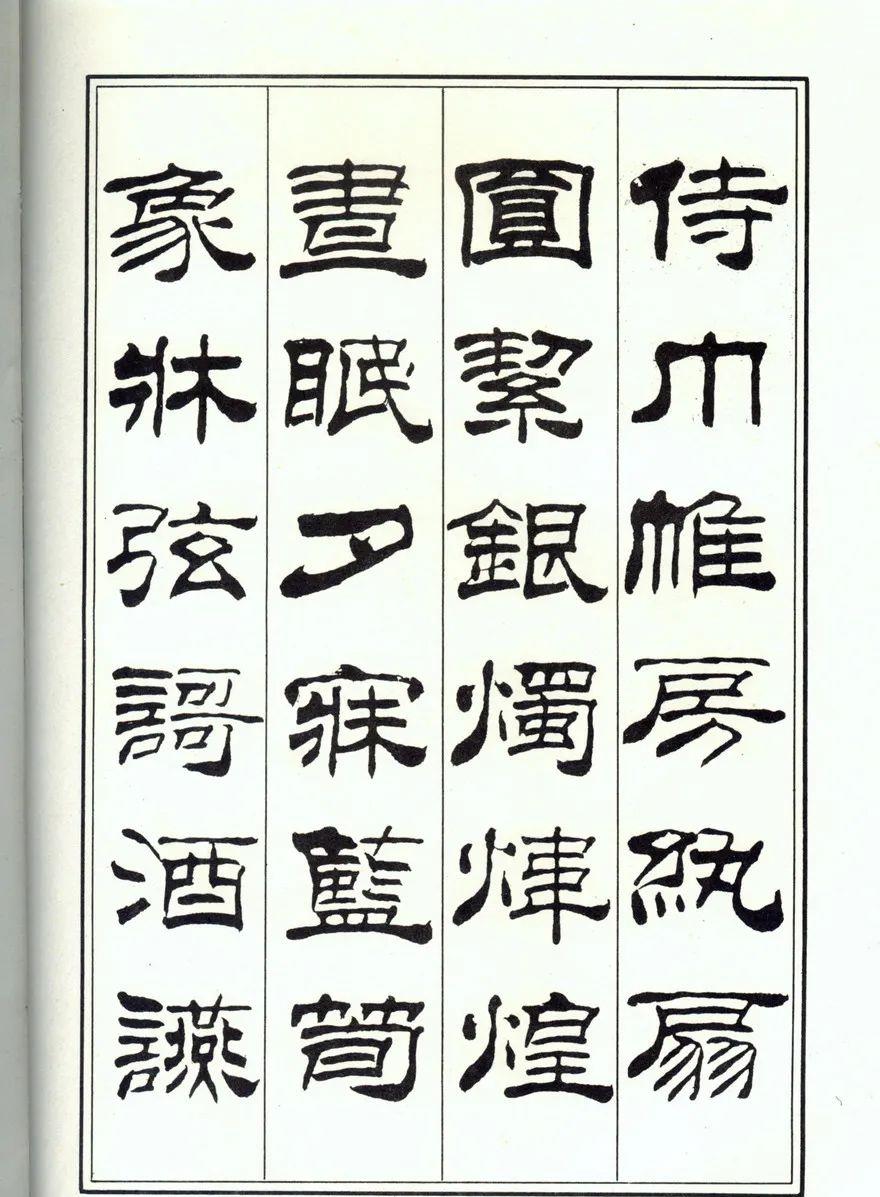 侍巾帷房紈扇
圓絜銀燭煒煌
晝眠夕寐藍筍
象牀弦謌酒讌